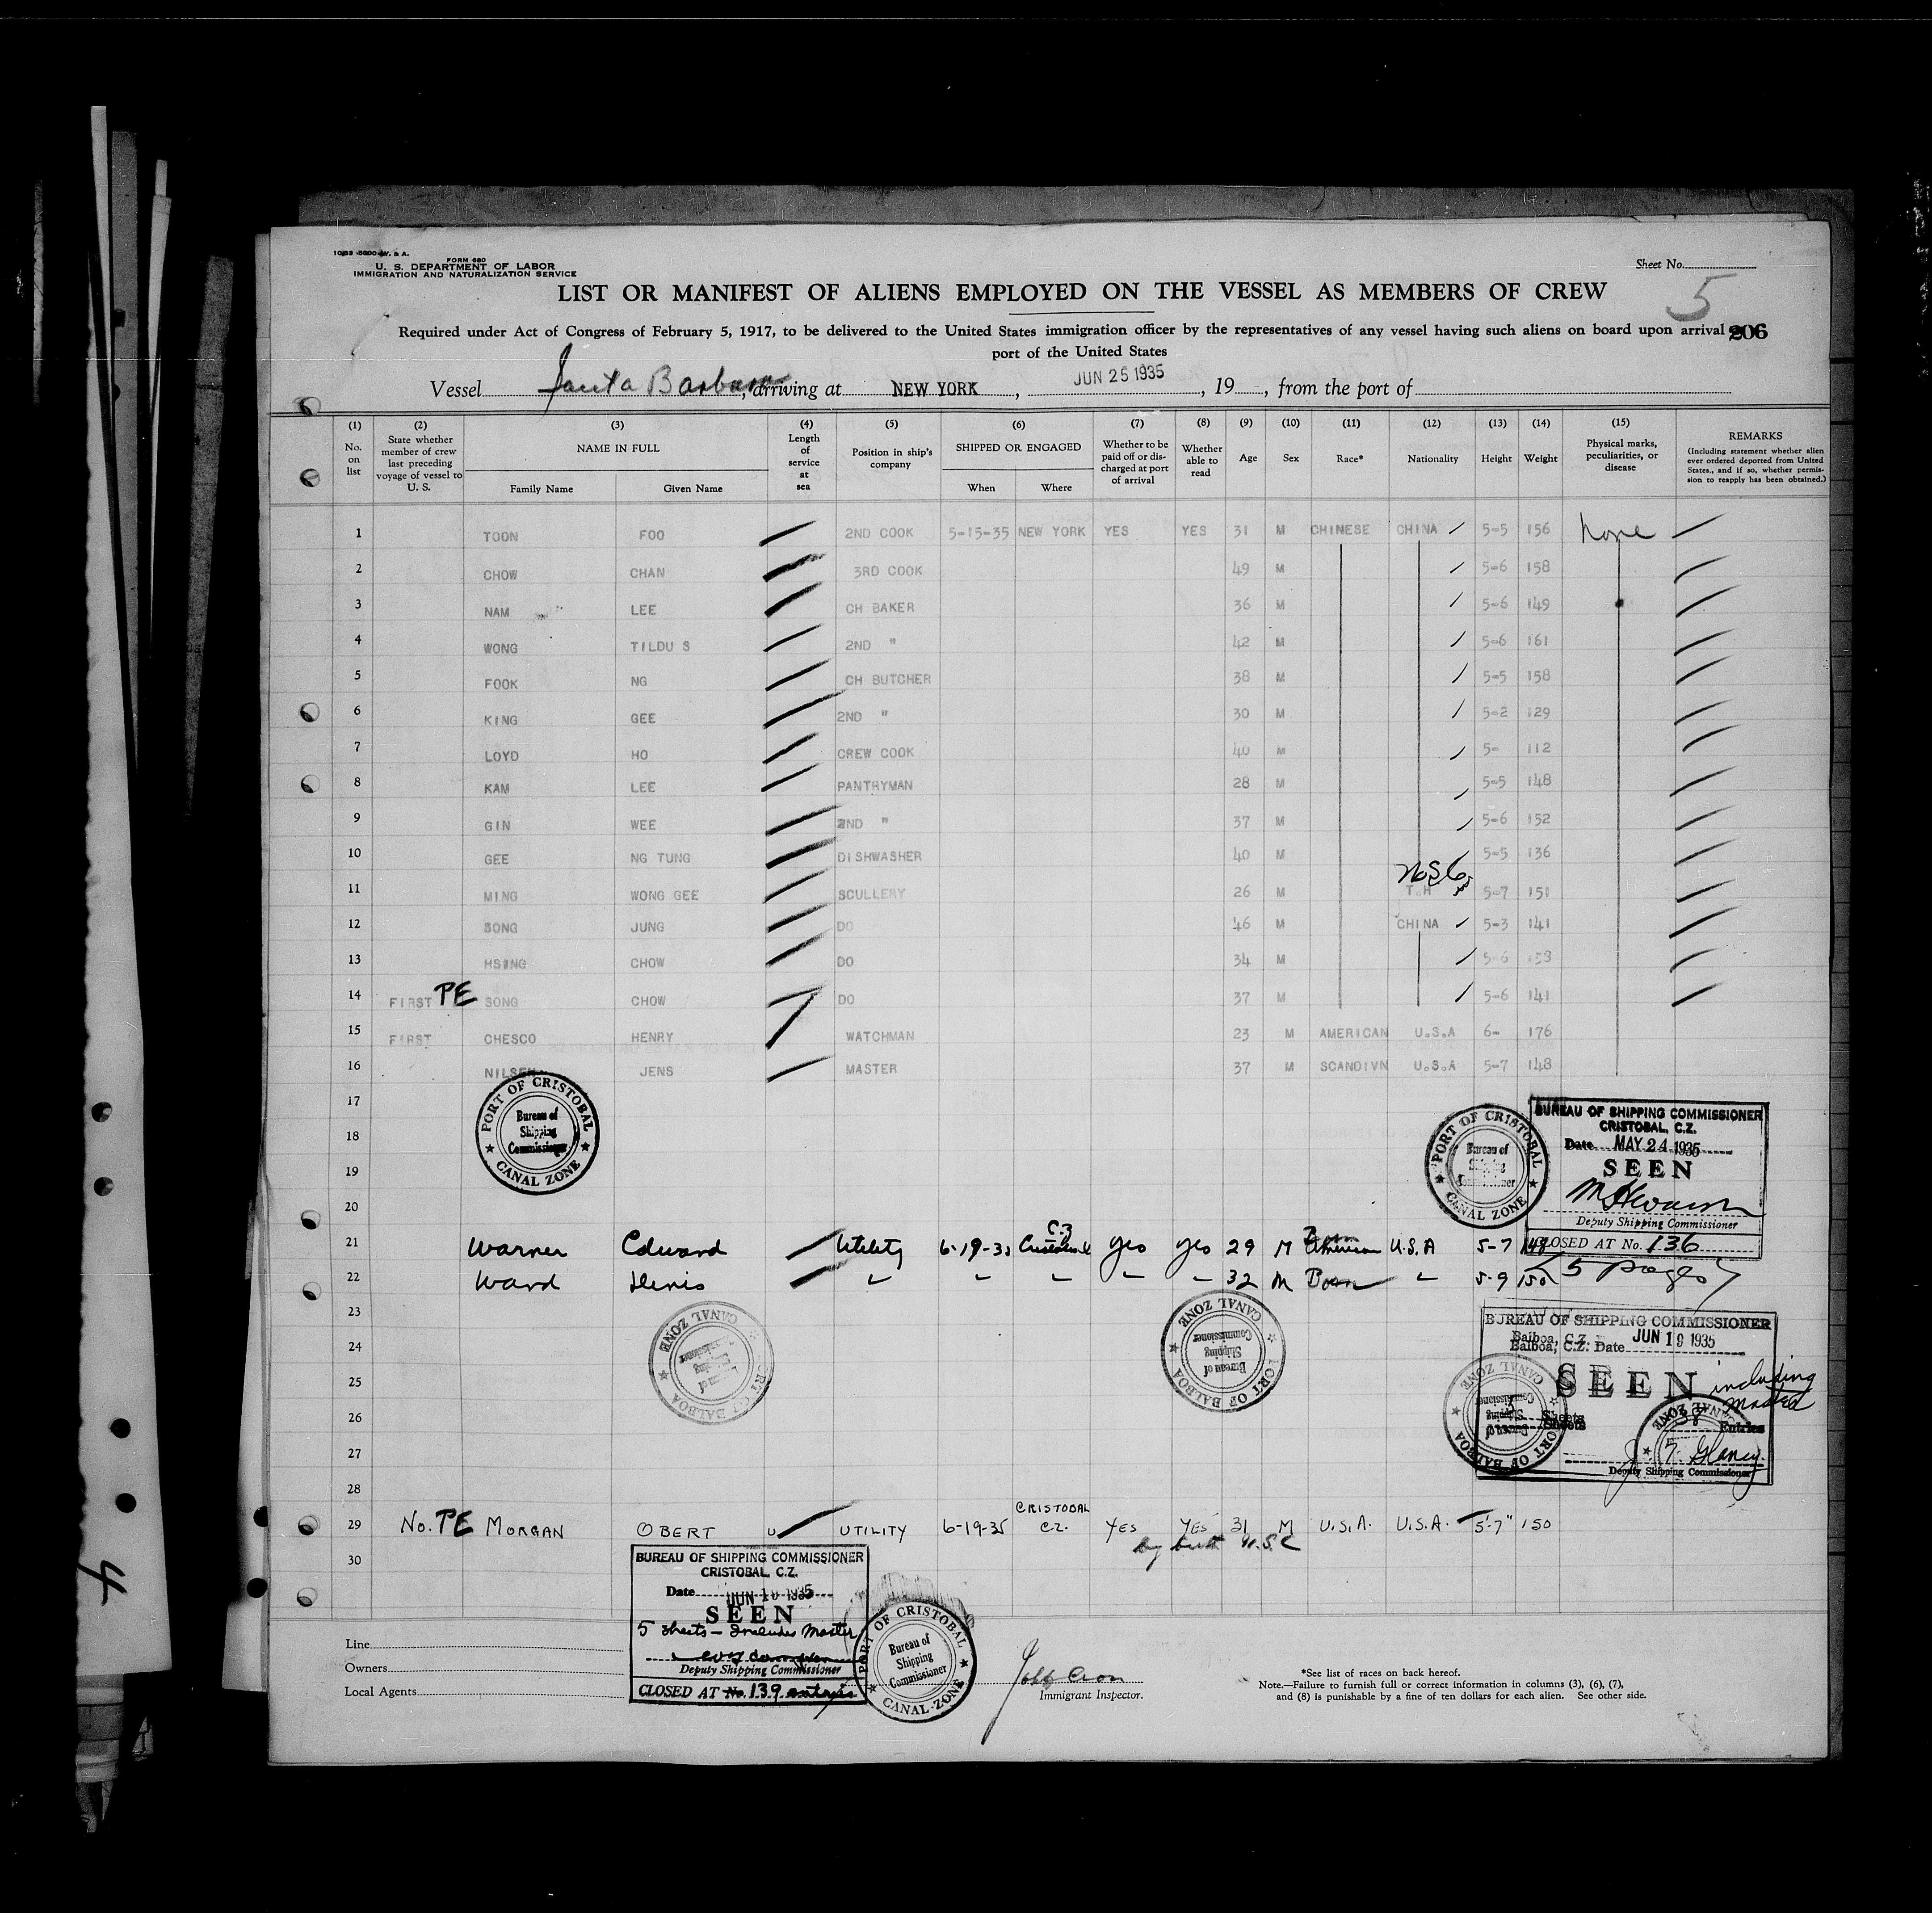 10-33-5000-W. & A.
FORM 680
U. S. DEPARTMENT OF LABOR
IMMIGRATION AND NATURALIZATION SERVICE
Sheet No.
5
LIST OR MANIFEST OF ALIENS EMPLOYED ON THE VESSEL AS MEMBERS OF CREW
Required under Act of Congress of February 5, 1917, to be delivered to the United States immigration officer by the representatives of any vessel having such aliens on board upon arrival
206
port of the United States
Vessel Santa Barbara, arriving at NEW YORK, JUN 25 1935, 19 , from the port of
(1) (2) (3) (4) (5) (6) (7) (8) (9) (10) (11) (12) (13) (14) (15)
No. on list
State whether member of crew last preceding voyage of vessel to U. S.
NAME IN FULL
Family Name Given Name
Length of service at sea
Position in ship's company
SHIPPED OR ENGAGED
When Where
Whether to be paid off or discharged at port of arrival
Whether able to read
Age Sex Race* Nationality Height Weight
Physical marks, peculiarities, or disease
REMARKS
(Including statement whether alien ever ordered deported from United States, and if so, whether permission to reapply has been obtained.)
1 TOON FOO 2ND COOK 5-15-35 NEW YORK YES YES 31 M CHINESE CHINA 5-5 156 None
2 CHOW CHAN 3RD COOK 49 M 5-6 158
3 NAM LEE CH BAKER 36 M 5-6 149
4 WONG TILDU S 2ND " 42 M 5-6 161
5 FOOK NG CH BUTCHER 38 M 5-5 158
6 KING GEE 2ND " 30 M 5-2 129
7 LOYD HO CREW COOK 40 M 5- 112
8 KAM LEE PANTRYMAN 28 M 5-5 148
9 GIN WEE 2ND " 37 M 5-6 152
10 GEE NG TUNG DISHWASHER 40 M 5-5 136
11 MING WONG GEE SCULLERY 26 M T.H 5-7 151
12 SONG JUNG DO 46 M CHINA 5-3 141
13 HSING CHOW DO 34 M 5-6 153
14 FIRST PE SONG CHOW DO 37 M 5-6 141
15 FIRST CHESCO HENRY WATCHMAN 23 M AMERICAN U.S.A 6- 176
16 NILSEN JENS MASTER 37 M SCANDIVN U.S.A 5-7 148
17
18
19
20
PORT OF CRISTOBAL
Bureau of Shipping Commissioner
CANAL ZONE
PORT OF CRISTOBAL
Bureau of
CANAL ZONE
BUREAU OF SHIPPING COMMISSIONER
CRISTOBAL, C.Z.
Date MAY 24 1935
SEEN
Deputy Shipping Commissioner
CLOSED AT No. 136
5 pages
21 Warner Edward Utility 6-19-35 Cristobal C.Z. yes yes 29 M American U.S.A 5-7 148
22 Ward Denis 32 M Born 5-9 150
23
24
25
26
27
28
CANAL ZONE
PORT OF BALBOA
CANAL ZONE
Bureau of Shipping Commissioner
PORT OF BALBOA
BUREAU OF SHIPPING COMMISSIONER
Balboa, C.Z. Date JUN 19 1935
SEEN including
Master
Sheets
Entries
Deputy Shipping Commissioner
CANAL ZONE
PORT OF BALBOA
29 No. PE MORGAN OBERT UTILITY 6-19-35 CRISTOBAL C.Z. YES YES 31 M U.S.A. U.S.A. 5'-7" 150
by birth U.S.C
30
BUREAU OF SHIPPING COMMISSIONER
CRISTOBAL, C.Z.
Date JUN 1935
SEEN
5 sheets – Includes Master
Deputy Shipping Commissioner
CLOSED AT No. 139 entries
PORT OF CRISTOBAL
Bureau of Shipping Commissioner
CANAL ZONE
Line
Owners
Local Agents
Immigrant Inspector.
*See list of races on back hereof.
Note.—Failure to furnish full or correct information in columns (3), (6), (7),
and (8) is punishable by a fine of ten dollars for each alien. See other side.
4